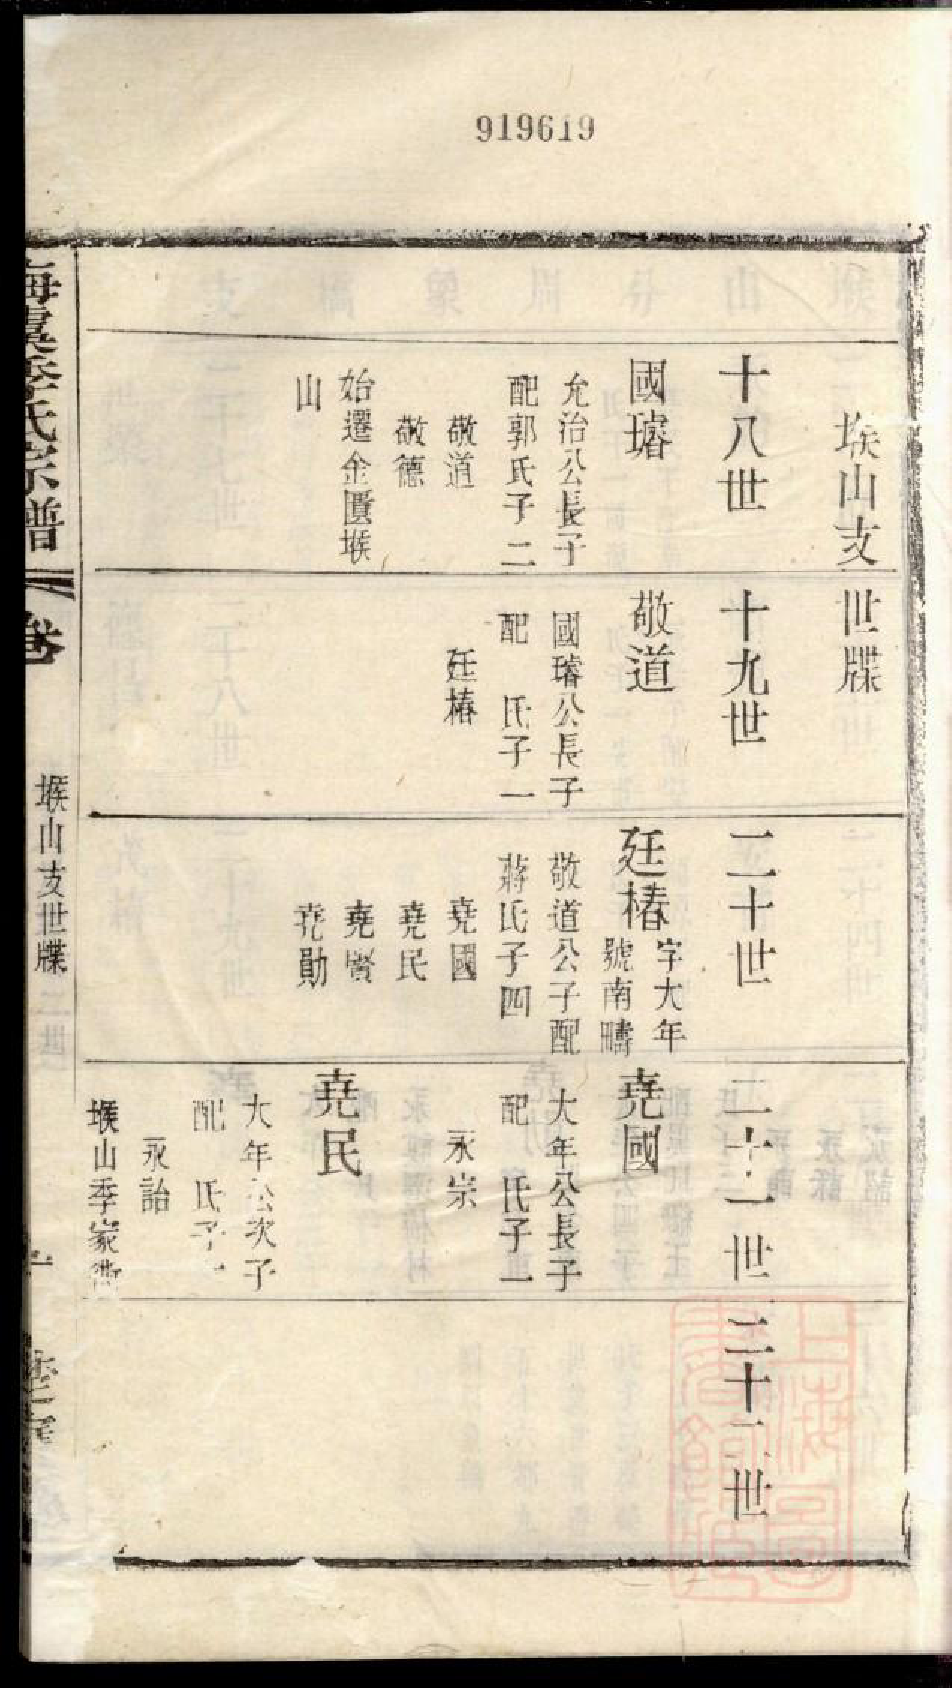 919619
堠山支世牒
十八世
國璿
允治公長子
配郭氏子二
敬道
敬德
始遷金匱堠
山
十九世
敬道
國璿公長子
配 氏子一
廷椿
二十世
廷椿
字大年
號南疇
敬道公子配
蔣氏子四
堯國
堯民
堯賢
堯勛
二十一世
堯國
大年公長子
配 氏子一
永宗
堯民
大年公次子
配 氏子一
永詒
堠山季家衖
二十二世
海虞季氏宗譜
卷
堠山支世牒